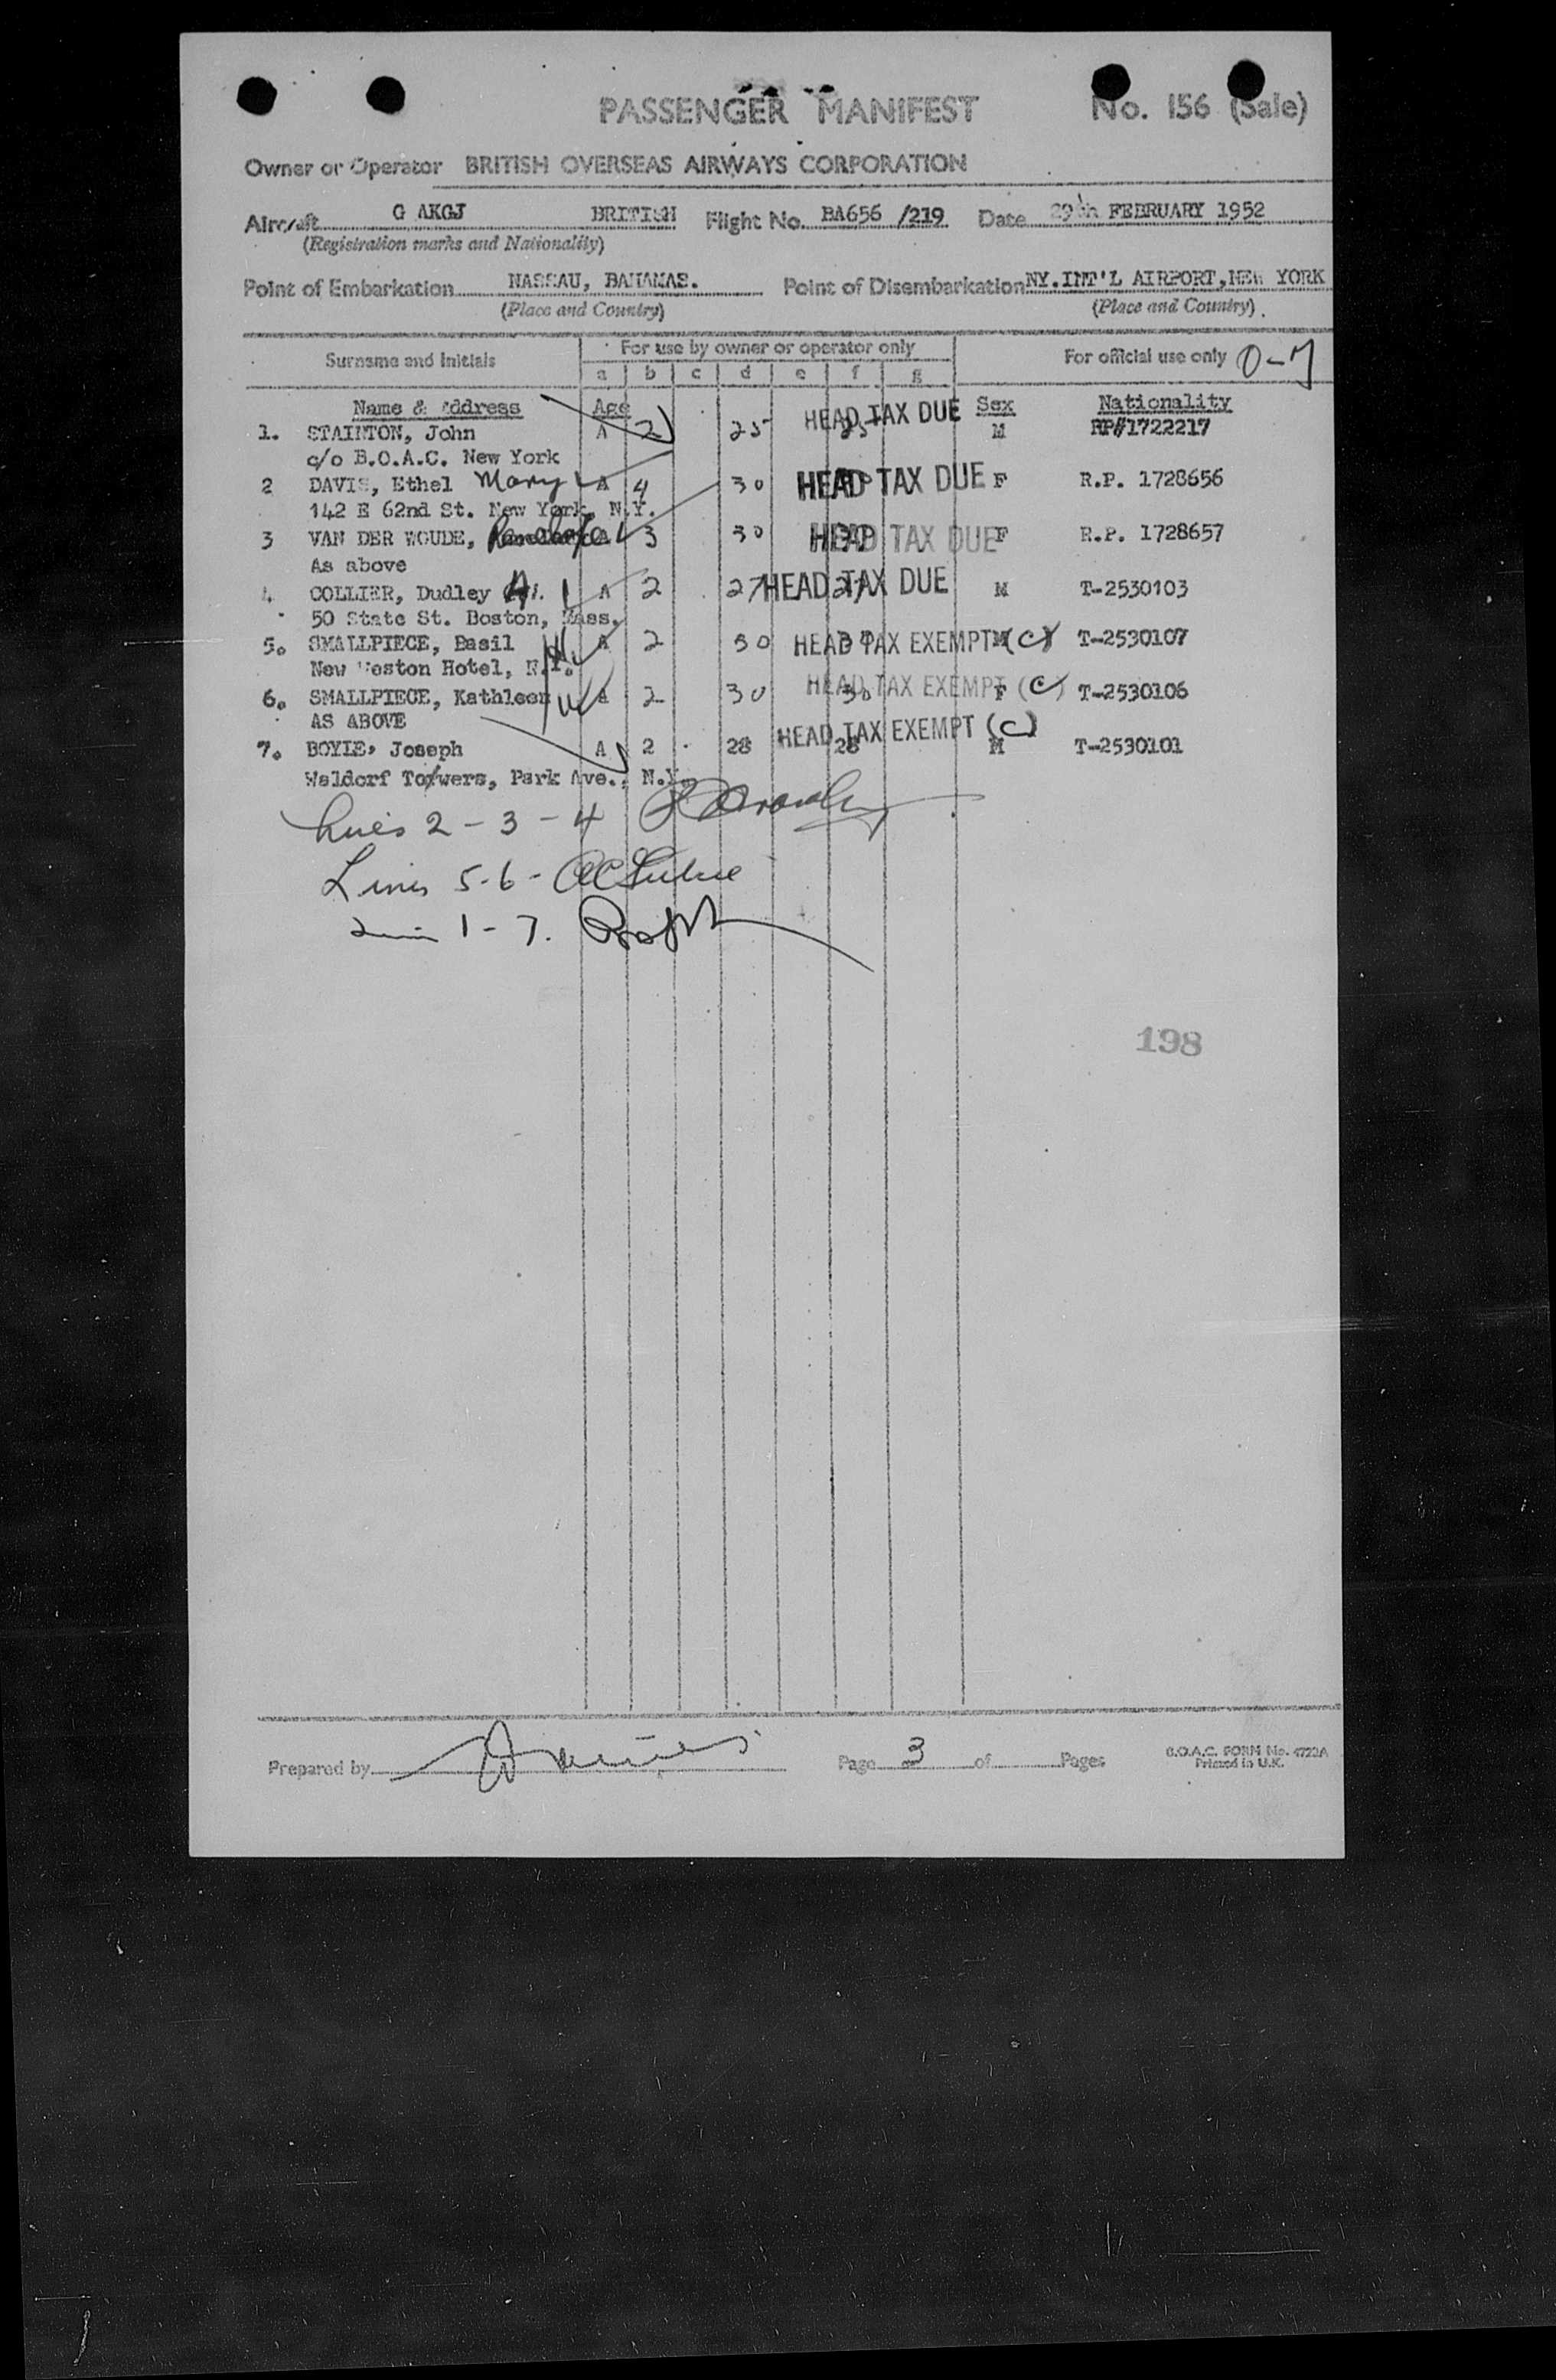 PASSENGER MANIFEST No. 156 (Sale)
Owner or Operator BRITISH OVERSEAS AIRWAYS CORPORATION
Aircraft G AKGJ BRITISH Flight No. BA656 /219 Date 29th FEBRUARY 1952
(Registration marks and Nationality)
Point of Embarkation NASSAU, BAHAMAS. Point of Disembarkation NY.INT'L AIRPORT, NEW YORK
(Place and Country) (Place and Country)
Surname and Initials For use by owner or operator only For official use only 0-7
a b c d e f g
Name & Address Age Sex Nationality
1. STAINTON, John A 2 25 25 HEAD TAX DUE M RP#1722217
c/o B.O.A.C. New York
2 DAVIS, Ethel Mary A 4 30 HEAD TAX DUE F R.P. 1728656
142 E 62nd St. New York, N.Y.
3 VAN DER WOUDE, A 3 30 30 HEAD TAX DUE F R.P. 1728657
As above
4 COLLIER, Dudley A 2 27 27 HEAD TAX DUE M T-2530103
50 State St. Boston, Mass.
5. SMALLPIECE, Basil A 2 30 30 HEAD TAX EXEMPT (C) M T-2530107
New Weston Hotel, N.Y.
6. SMALLPIECE, Kathleen A 2 30 30 HEAD TAX EXEMPT (C) F T-2530106
AS ABOVE
7. BOYLE, Joseph A 2 28 28 HEAD TAX EXEMPT (C) M T-2530101
Waldorf Towers, Park Ave., N.Y.
Lines 2-3-4
Lines 5-6-
1-7.
198
Prepared by Page 3 of Pages B.O.A.C. FORM No. 4722A
Printed in U.K.